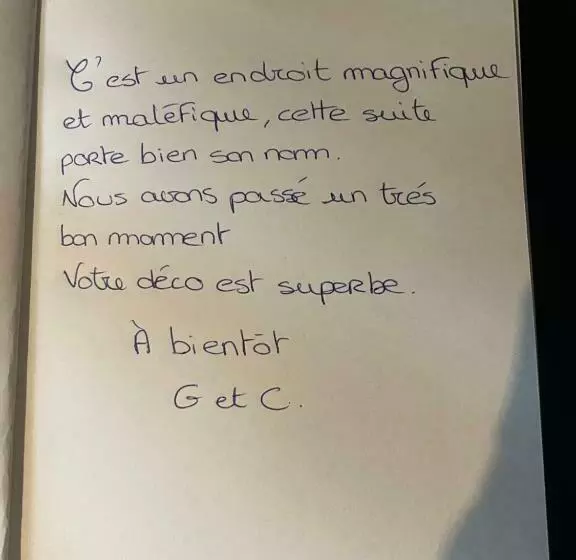 C'est un endroit magnifique
et maléfique, cette suite
porte bien son nom.
Nous avons passé un trés
bon moment
Votre déco est superbe.
À bientôt
G et C.